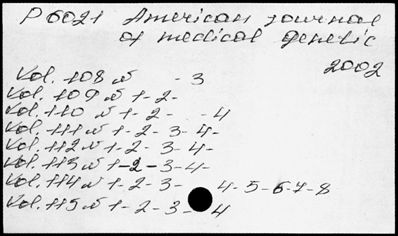 P 6021 American journal
of medical genetic
2002
Vol. 108 № - 3
Vol. 109 № 1-2-
Vol. 110 № 1-2- -4
Vol. 111 № 1-2-3-4-
Vol. 112 № 1-2-3-4-
Vol. 113 № 1-2-3-4-
Vol. 114 № 1-2-3- 4-5-6-7-8
Vol. 115 № 1-2-3- 4